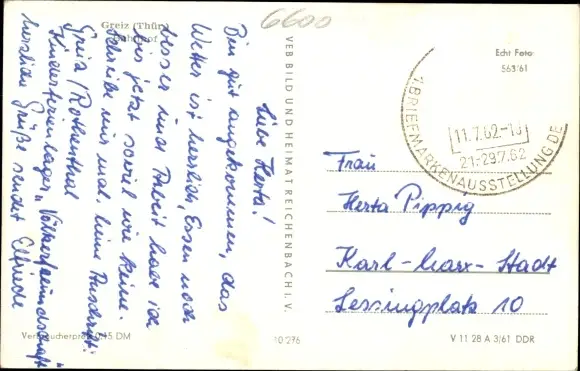 6600
Greiz (Thür)
Bahnhof
Liebe Herta!
Bin gut angekommen, das
Wetter ist herrlich, Essen noch
besser und Arbeit habe ich
bis jetzt soviel wie keine.
Schreibe mir mal, meine Anschrift:
Greiz / Rothenthal
Kinderferienlager "Völkerfreundschaft"
herzliche Grüße sendet Elfriede
Verbraucherpreis 0,15 DM
VEB BILD UND HEIMAT REICHENBACH I. V.
10 276
Echt Foto
563/61
1. BRIEFMARKENAUSSTELLUNG DE
11.7.62-18
21.-29.7.62
Frau
Herta Pippig
Karl-Marx-Stadt
Lessingplatz 10
V 11 28 A 3/61 DDR